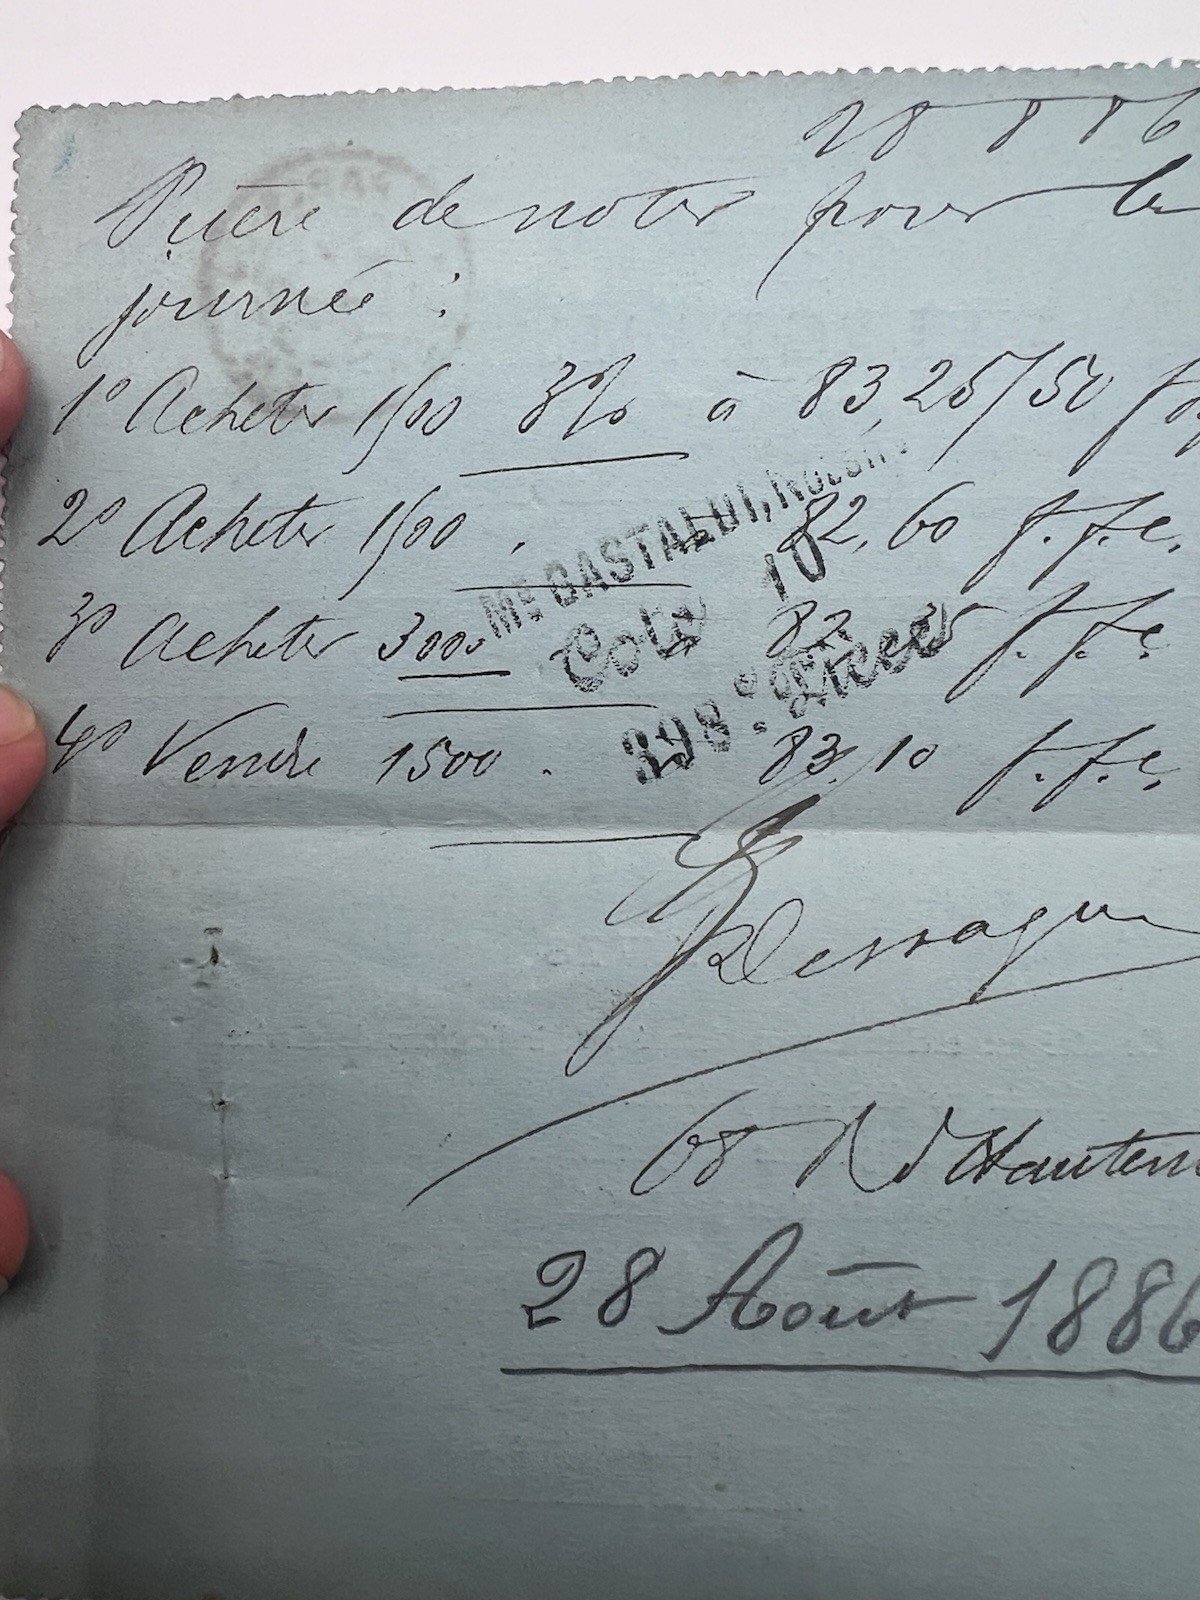 28 8 86
Prière de noter pour la
journée :
1° Acheter 1500 3% à 83,25/50
2° Acheter 1500 82,60 f.f.c.
3° Acheter 3000 82 35 f.f.c.
4° Vendre 1500 83,10 f.f.c.
Me GASTALDI,
Cote 10
398e Pièce
68 R d'Hautem
28 Août 1886